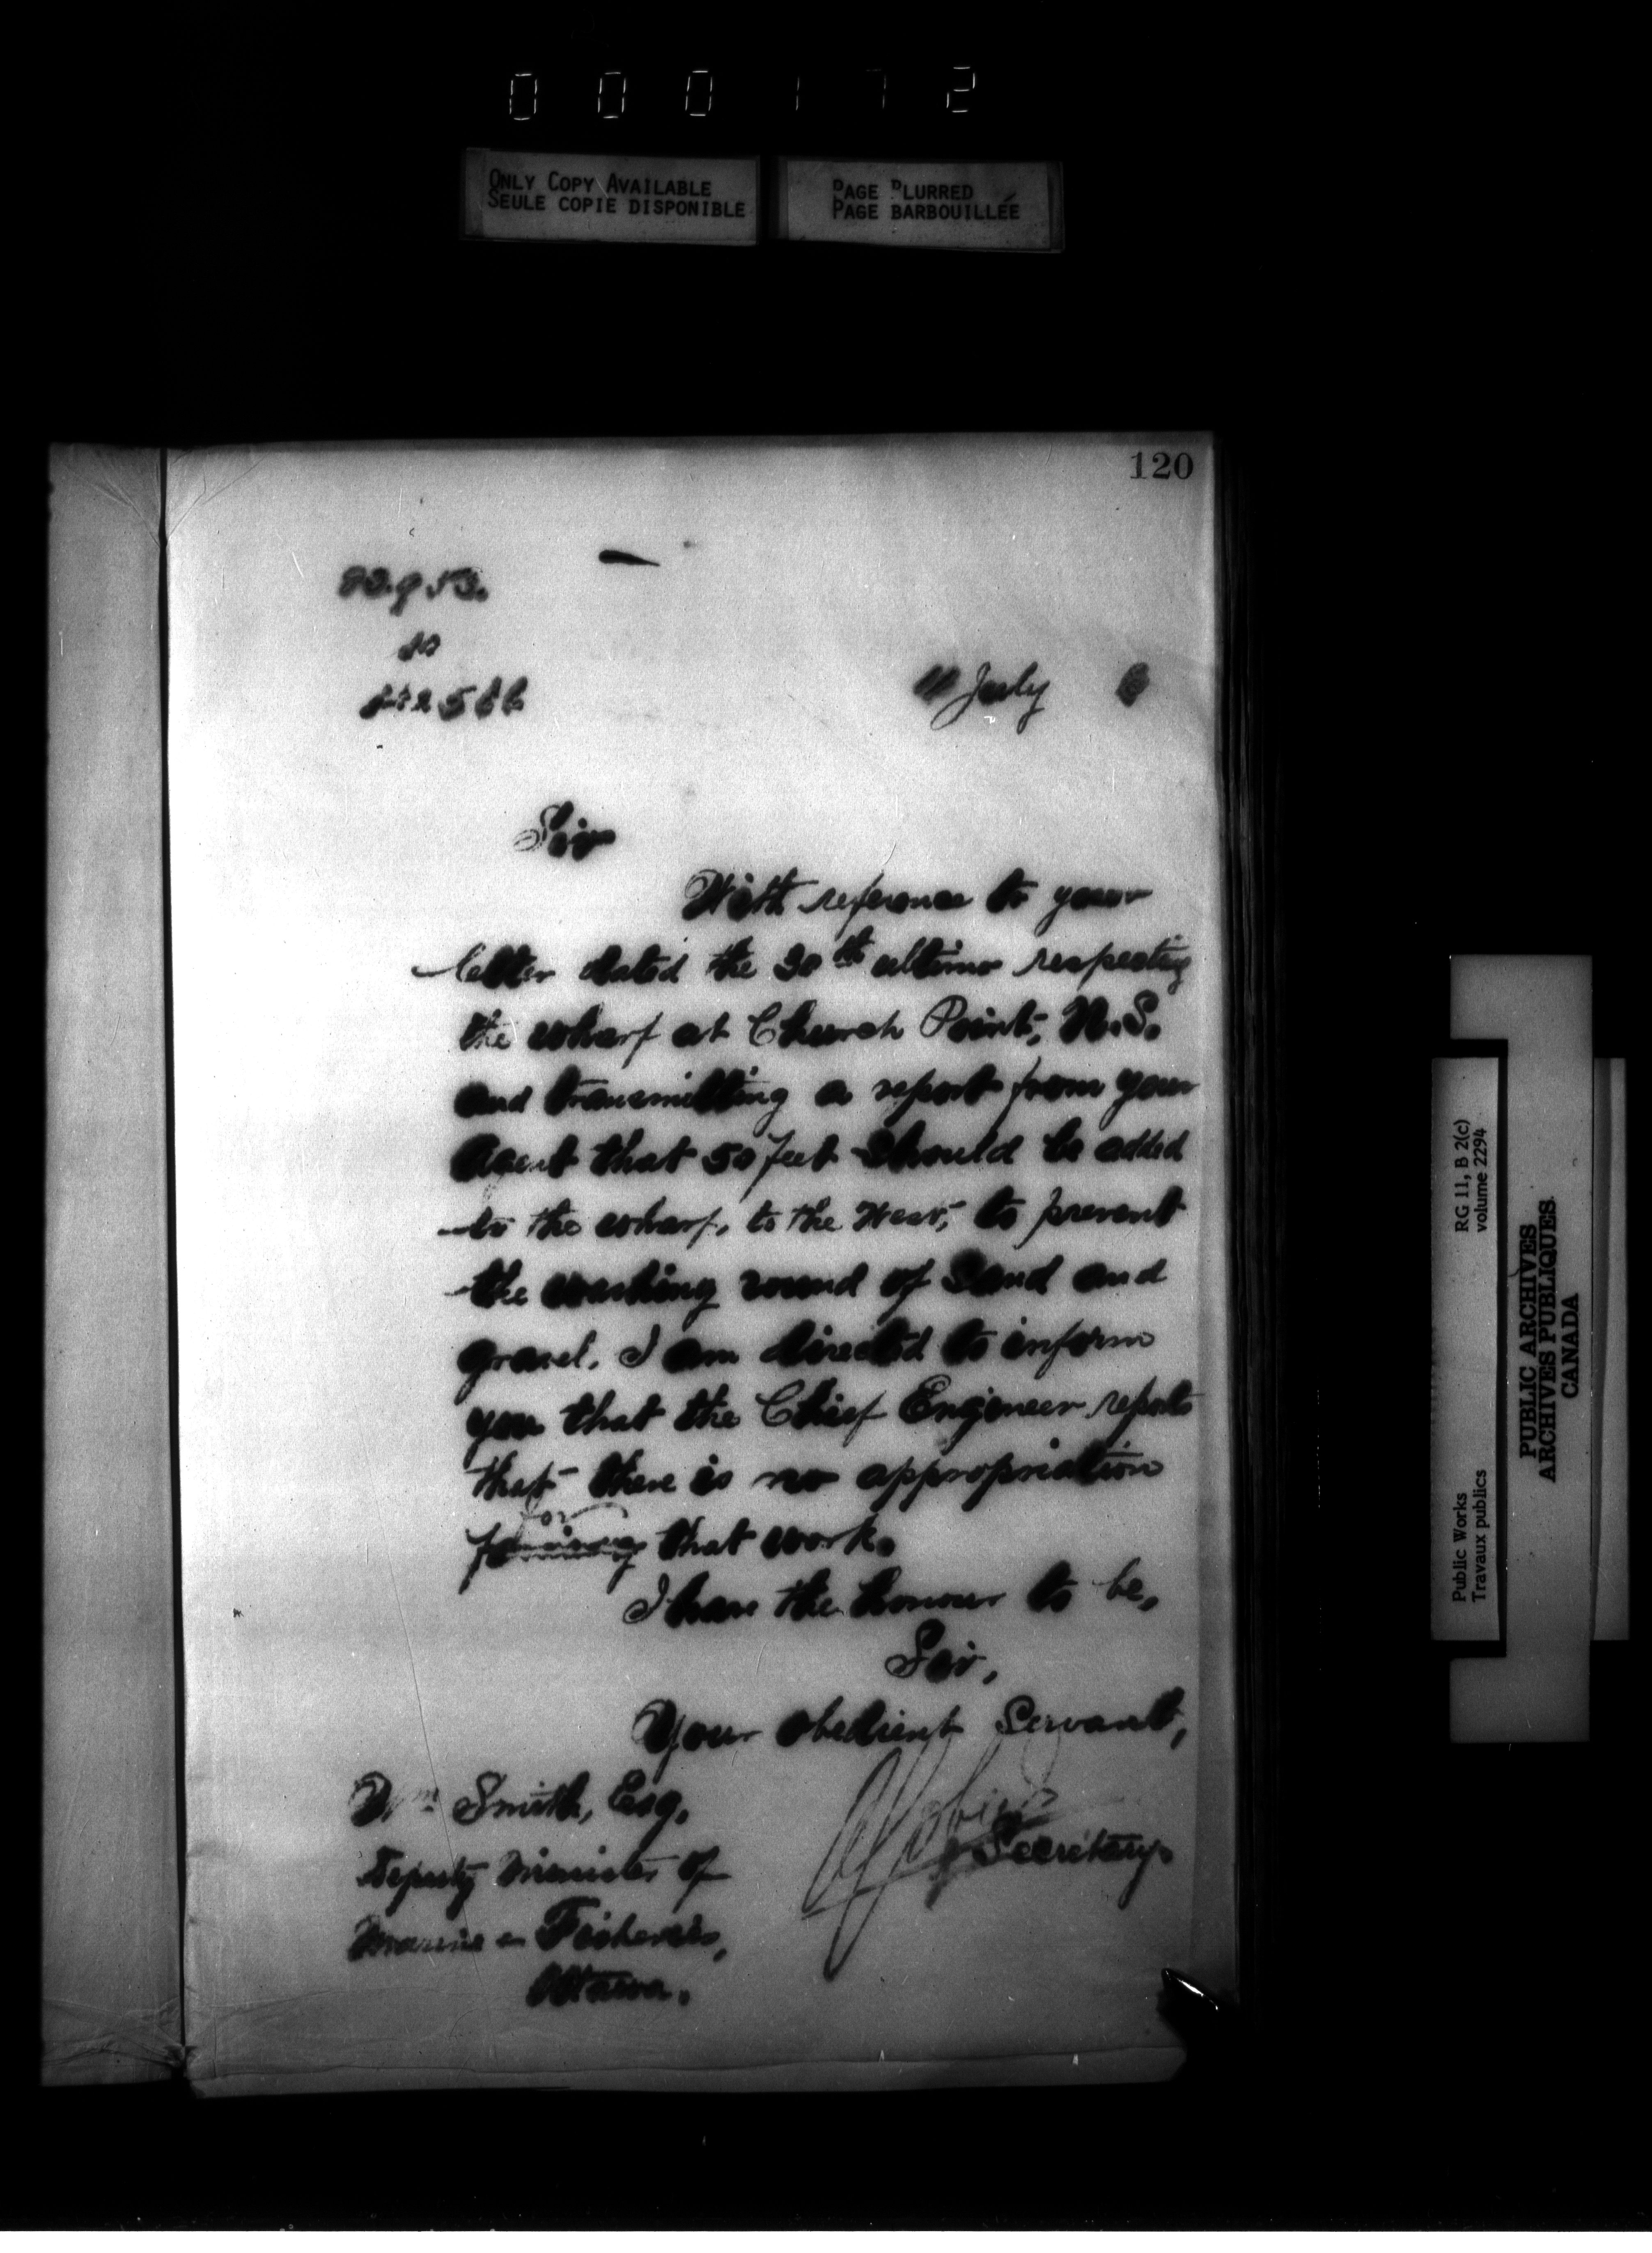 000172
ONLY COPY AVAILABLE
SEULE COPIE DISPONIBLE
PAGE BLURRED
PAGE BARBOUILLÉE
120
July
Sir
With reference to your
letter dated the 30th ultimo respecting
the wharf at Church Point, N.S.
and transmitting a report from your
Agent that 50 feet should be added
to the wharf, to the West, to prevent
the washing round of Sand and
gravel. I am directed to inform
you that the Chief Engineer reports
that there is no appropriation
for
that work.
I have the honour to be,
Sir,
Your obedient Servant,
Wm Smith, Esq.
Secretary.
Deputy Minister of
Marine & Fisheries,
Ottawa.
Public Works
Travaux publics
RG 11, B 2(c)
volume 2294
PUBLIC ARCHIVES
ARCHIVES PUBLIQUES
CANADA